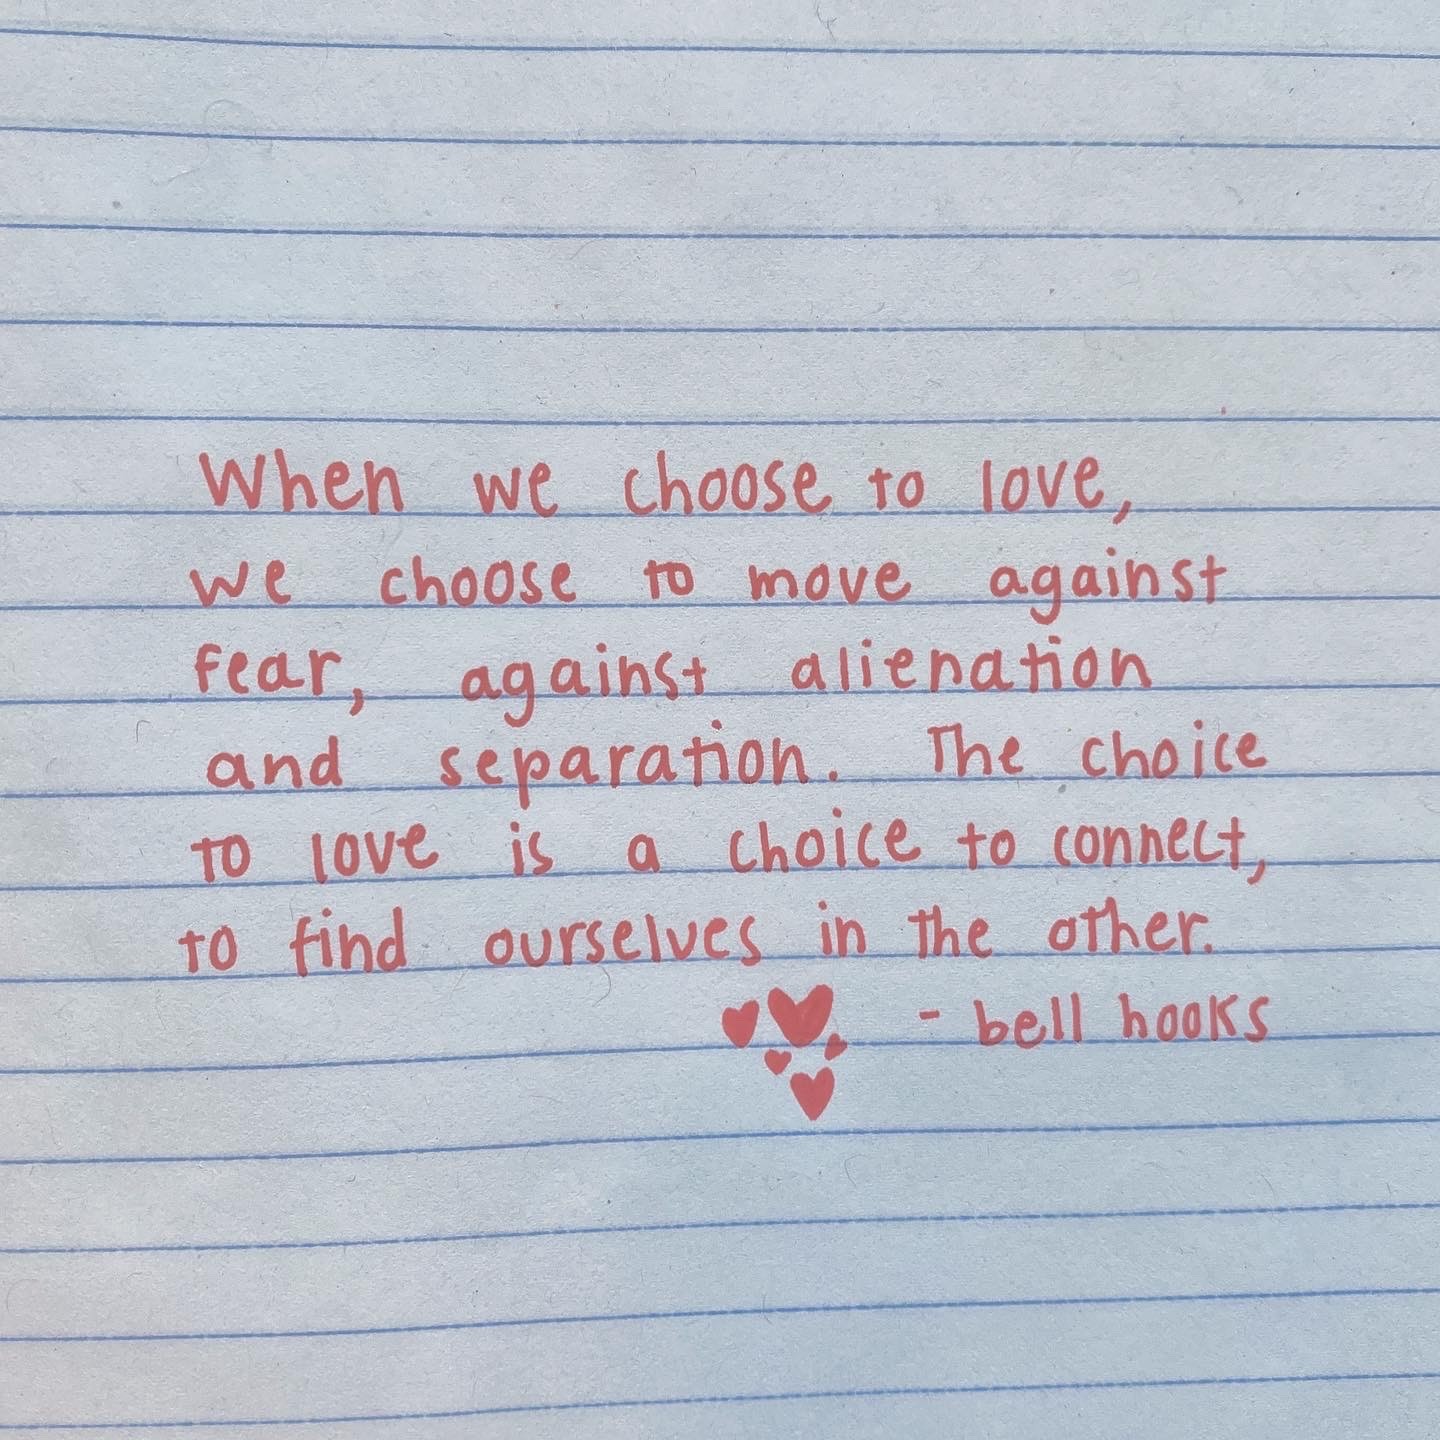 When we choose to love,
we choose to move against
fear, against alienation
and separation. The choice
to love is a choice to connect,
to find ourselves in the other.
- bell hooks